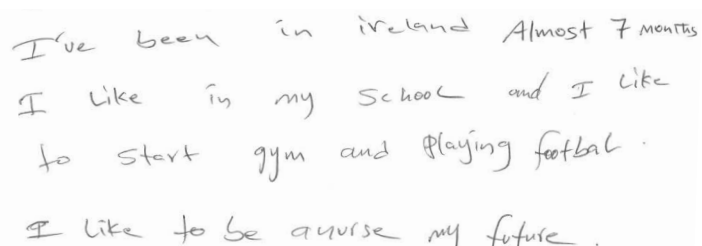 I've been in ireland Almost 7 months
I like in my school and I like
to start gym and playing footbal.
I like to be anurse my future.